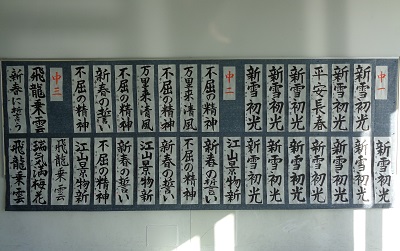 中一
新雪初光
新雪初光
平安長春
新雪初光
新雪初光
新雪初光
中二
不屈の精神
万里来清風
不屈の精神
万里来清風
不屈の精神
新春の誓い
不屈の精神
中三
飛龍乗雲
新春に誓う
新雪初光
新雪初光
新雪初光
新雪初光
新雪初光
新雪初光
新雪初光
江山景物新
新春の誓い
不屈の精神
新春の誓い
江山景物新
新春の誓い
不屈の精神
江山景物新
飛龍乗雲
瑞気満梅花
飛龍乗雲